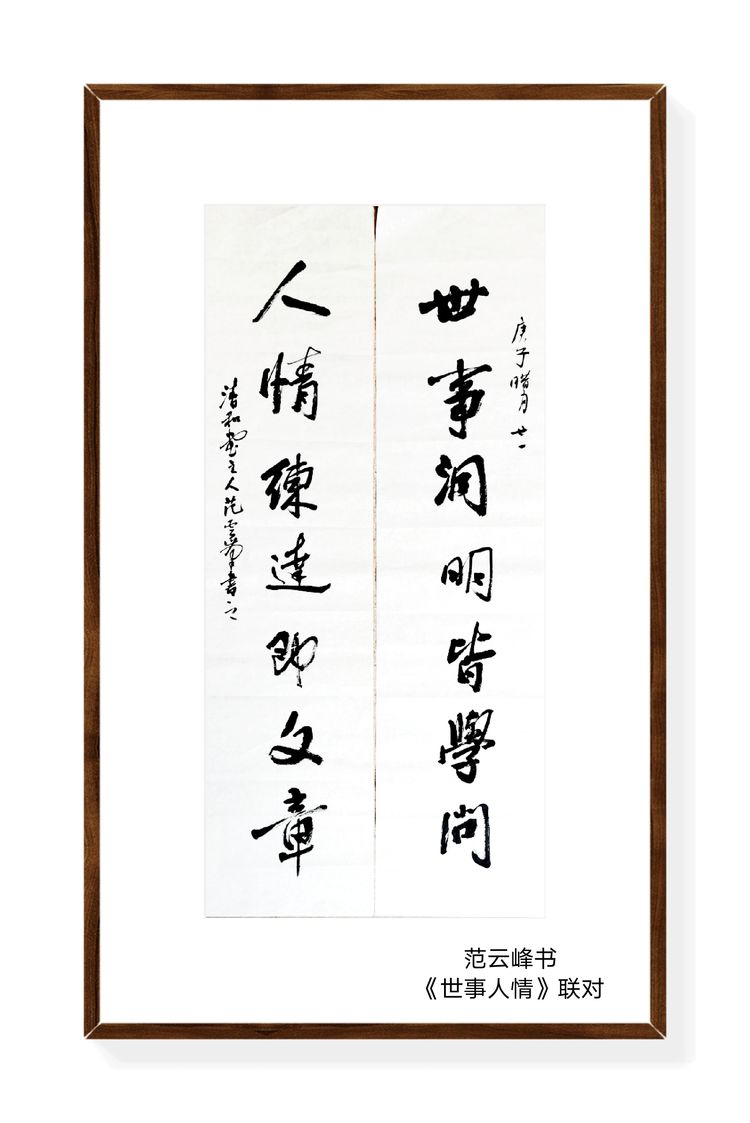 庚子腊月廿一
世事洞明皆學問
人情練達即文章
清和堂主人范雲峰書之
范云峰书
《世事人情》联对